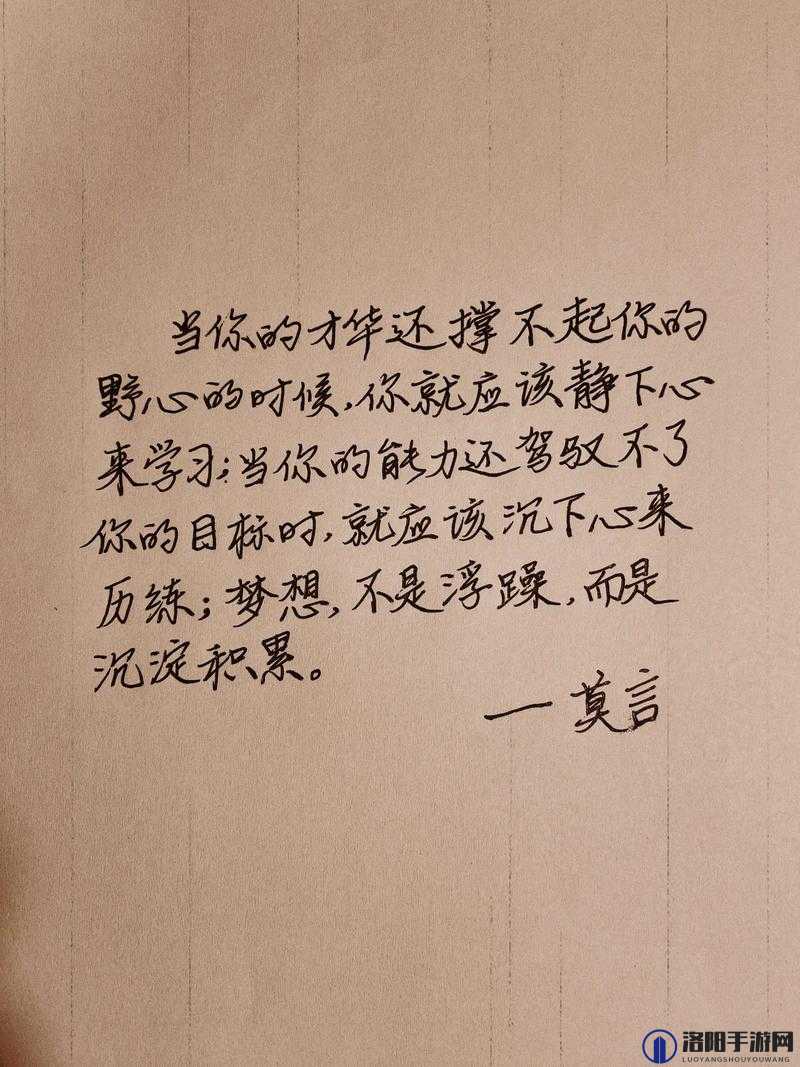 当你的才华还撑不起你的
野心的时候,你就应该静下心
来学习;当你的能力还驾驭不了
你的目标时,就应该沉下心来
历练;梦想,不是浮躁,而是
沉淀积累。
一莫言
洛阳手游网
LUOYANGSHOUYOUWANG